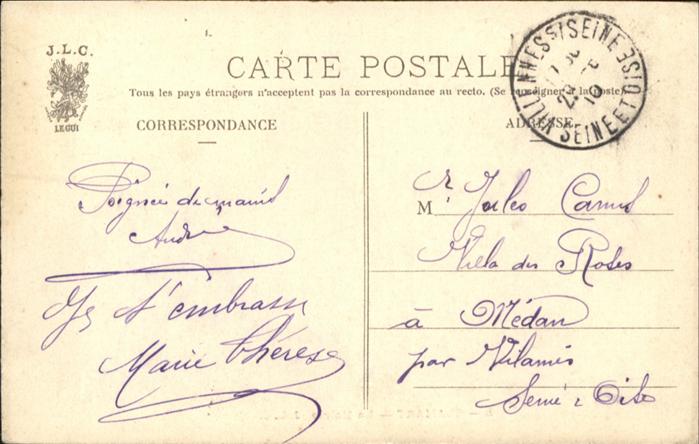 J.L.C.
LE GUI
CARTE POSTALE
Tous les pays étrangers n'acceptent pas la correspondance au recto. (Se renseigner à la Poste)
CORRESPONDANCE
Poignée de mains
André
Je t'embrasse
Marie Thérèse
ADRESSE
VILLENNES S/ SEINE
SEINE ET OISE
Mr Jules Camus
Villa des Roses
à Médan
par Vilaines
Seine & Oise